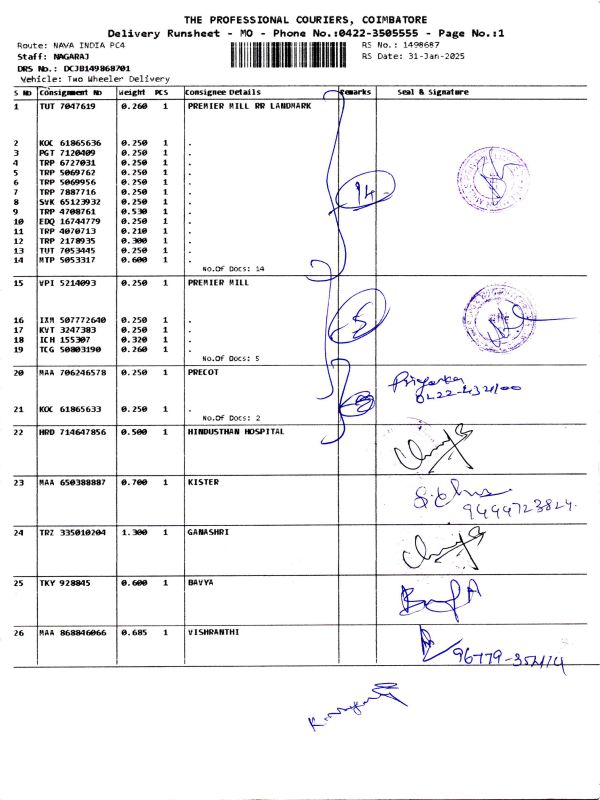 THE PROFESSIONAL COURIERS, COIMBATORE
Delivery Runsheet - MO - Phone No.:0422-3505555 - Page No.:1
Route: NAVA INDIA PC4 RS No.: 1498687
Staff: NAGARAJ RS Date: 31-Jan-2025
DRS No.: DCJB149868701
Vehicle: Two Wheeler Delivery
S No Consignment No Weight PCS Consignee Details Remarks Seal & Signature
1 TUT 7047619 0.260 1 PREMIER MILL RR LANDMARK
2 KOC 61865636 0.250 1 .
3 PGT 7120409 0.250 1 .
4 TRP 6727031 0.250 1 .
5 TRP 5069762 0.250 1 .
6 TRP 5069956 0.250 1 .
7 TRP 7887716 0.250 1 .
8 SVK 65123932 0.250 1 .
9 TRP 4708761 0.530 1 .
10 EDQ 16744779 0.250 1 .
11 TRP 4070713 0.210 1 .
12 TRP 2178935 0.300 1 .
13 TUT 7053445 0.250 1 .
14 MTP 5053317 0.600 1 .
No.Of Docs: 14
14
15 VPI 5214093 0.250 1 PREMIER MILL
16 IXM 507772640 0.250 1 .
17 KVT 3247383 0.250 1 .
18 ICH 155307 0.320 1 .
19 TCG 50803190 0.260 1 .
No.Of Docs: 5
5
20 MAA 706246578 0.250 1 PRECOT
Priyanka
0422-4321100
21 KOC 61865633 0.250 1 .
No.Of Docs: 2
22 HRD 714647856 0.500 1 HINDUSTHAN HOSPITAL
23 MAA 650388887 0.700 1 KISTER
9444723824.
24 TRZ 335010204 1.300 1 GANASHRI
25 TKY 928845 0.600 1 BAVYA
26 MAA 868846066 0.685 1 VISHRANTHI